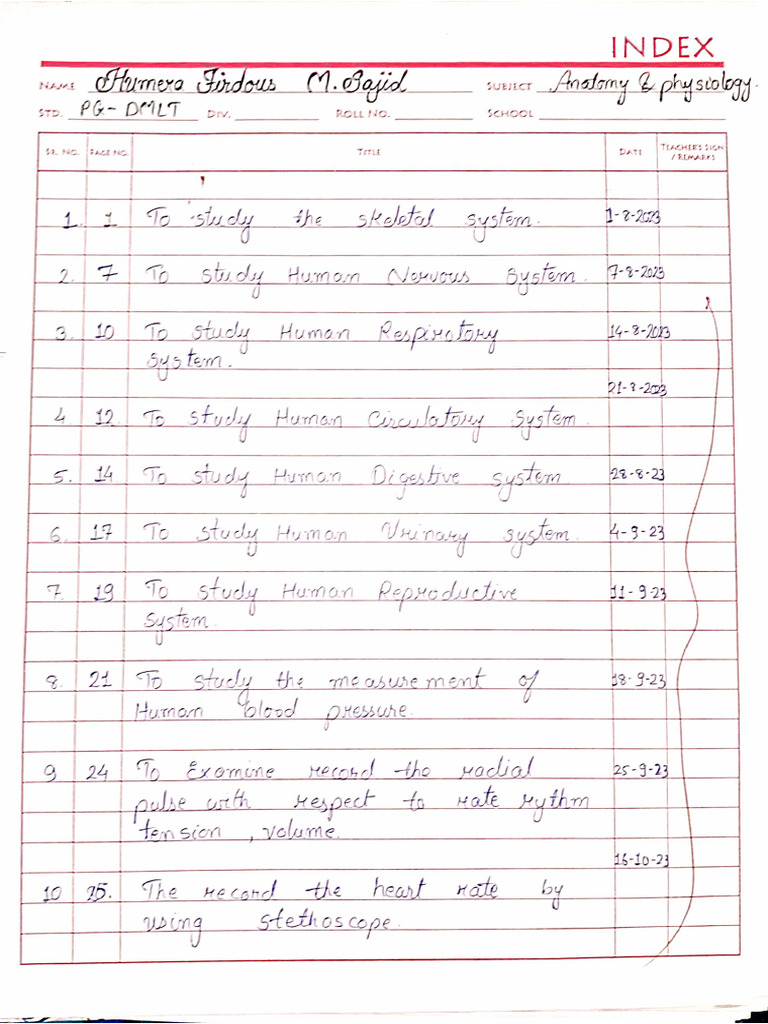 INDEX
NAME Humera Firdous M. Sajid SUBJECT Anatomy & physiology.
STD. PG-DMLT DIV. ROLL NO. SCHOOL
SR. NO. PAGE NO. TITLE DATE TEACHER'S SIGN / REMARKS
1. 1 To study the skeletal system. 1-8-2023
2. 7 To study Human Nervous System. 7-8-2023
3. 10 To study Human Respiratory 14-8-2023
system.
21-8-2023
4 12. To study Human Circulatory System.
5. 14 To study Human Digestive system 28-8-23
6. 17 To study Human Urinary system. 4-9-23
7. 19 To study Human Reproductive 11-9-23
system.
8. 21 To study the measurement of 18-9-23
Human blood pressure.
9 24 To Examine record the radial 25-9-23
pulse with respect to rate rythm
tension , volume.
16-10-23
10 25. The record the heart rate by
using stethoscope.